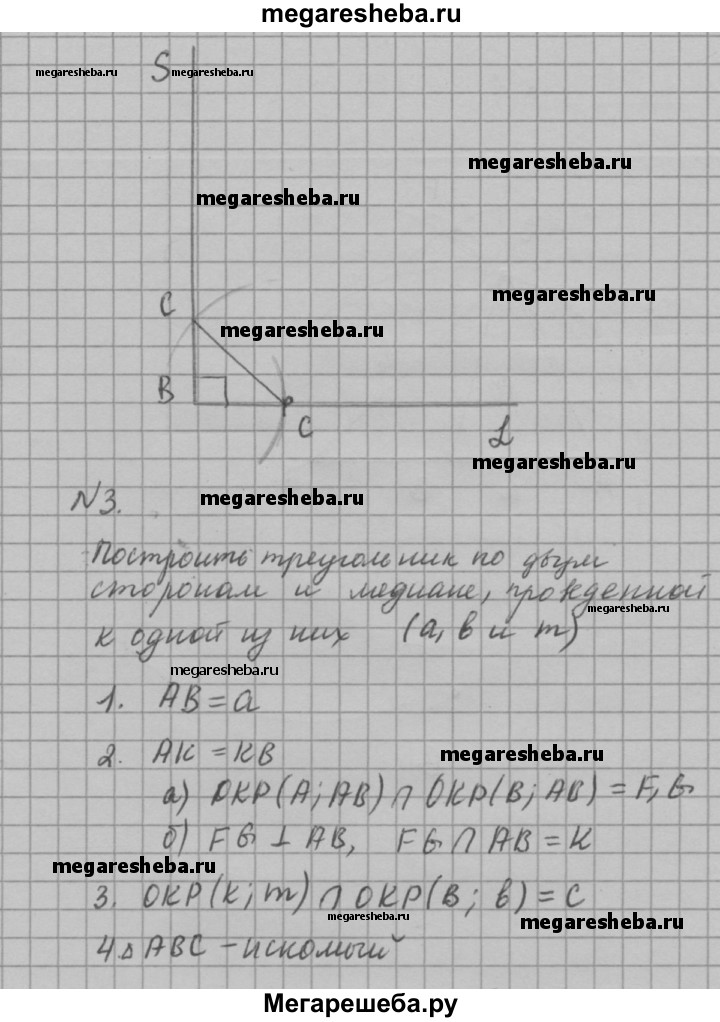 megaresheba.ru
S
megaresheba.ru
megaresheba.ru
megaresheba.ru
megaresheba.ru
megaresheba.ru
C
megaresheba.ru
B
C
L
megaresheba.ru
N3.
megaresheba.ru
Построить треугольник по двум
сторонам и медиане, прожденной
megaresheba.ru
к одной из них (a, в и m)
megaresheba.ru
1. AB = a
2. AK = KB
megaresheba.ru
а) ОКР(A; AB) ∩ ОКР(B; AB) = F, G
б) FG ⊥ AB, FG ∩ AB = K
megaresheba.ru
3. ОКР(K; m) ∩ ОКР(B; в) = C
megaresheba.ru
megaresheba.ru
4. Δ ABC – искомый
Мегарешеба.ру